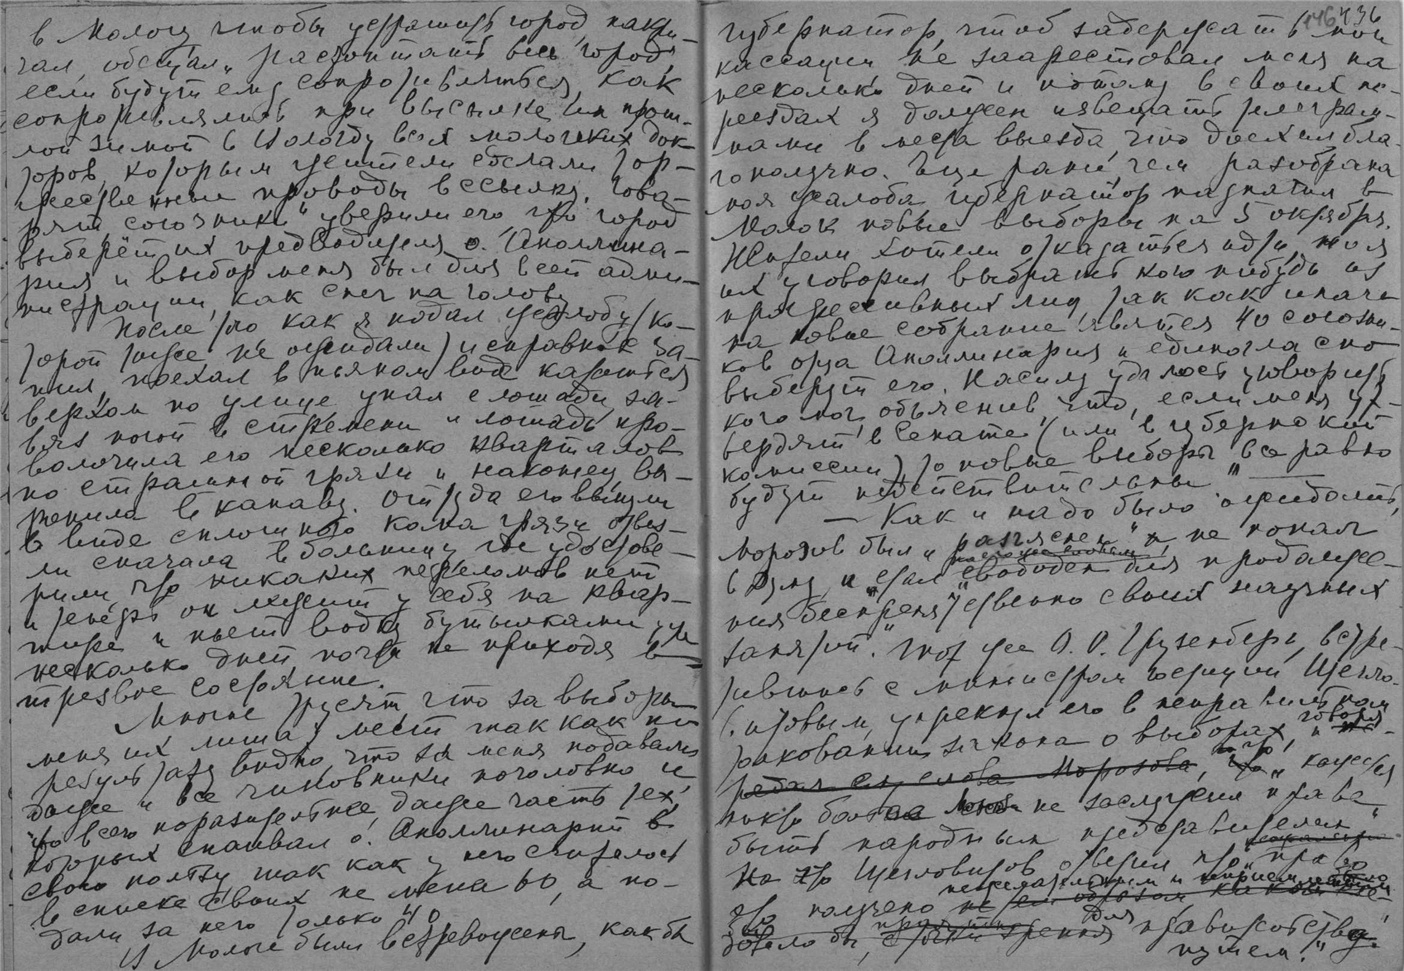 в Мологу чтобы устрашить город, кри-
чал, обещал "расточтать весь город,
если будут ему сопротивляться, как
сопротивлялись при высылке им прош-
лой зимой в Вологду всех мологских док-
торов, которым устроили сделали тор-
жественные проводы в ссылку. Гово-
рят, союзники "уверили его, что город
выберет их предводителя о. Аполлина-
рия и выбор меня был для всей адми-
нистрации, как снег на голову
После того как я подал жалобу (ко-
торой тоже не ожидали) исправник за-
пил, поехал в пьяном виде кажется
верхом по улице упал с лошади за-
вяз ногой в стремени и лошадь про-
волочила его несколько кварталов
по страшной грязи и наконец вы-
ронила в канаву. Оттуда его вынули
в виде сплошного кома грязи отвез-
ли сначала в больницу где удостове-
рили что никаких переломов нет
и теперь он лежит у себя на квар-
тире и пьет водку бутылками уж
несколько дней, почти не приходя в
трезвое состояние.
Многие трусят что за выборы
меня их лишат мест так как по
результату видно, что за меня подавали
даже и все чиновники поголовно и
что всего поразительнее даже часть тех,
которых спаивал о. Аполлинарий в
свою пользу так как у него считалось
в списке своих не менее 60, а по-
дали за него только 40
В Мологе были встревожены, как бы
губернатор, чтоб задержать мои
кассации не заарестовал меня на
несколько дней и потому в своих пе-
реездах я должен извещать телеграм-
мами в места выезда, что доехал бла-
гополучно. Еще ранее, чем разобрана
моя жалоба губернатор назначил в
Мологе новые выборы на 5 октября.
Жители хотели отказаться идти, но я
их уговорил выбрать кого нибудь из
прогрессивных лиц, так как иначе
на новые собрание явятся 40 союзни-
ков отца Аполлинария и единогласно
выберут его. Насилу удалось уговорить
кого мог, объяснив, что, если меня ут-
вердят в Сенате (или в губернской
комиссии) то новые выборы все равно
будут недействительны"
— Как и надо было ожидать,
Морозов был "разъяснен" и не попал
в Думу, и "стал свободен для продолже-
ния беспрепятственно своих научных
занятий". Тот же О. О. Грузенберг, встре-
тившись с министром юстиции Щегло-
витовым, упрекнул его в неправильном
толковании закона о выборах, говоря
что "кажется
никто более не заслужил права
быть народным представителем"
На это Щегловитов ответил что "право
это получено
для правительства
путем."